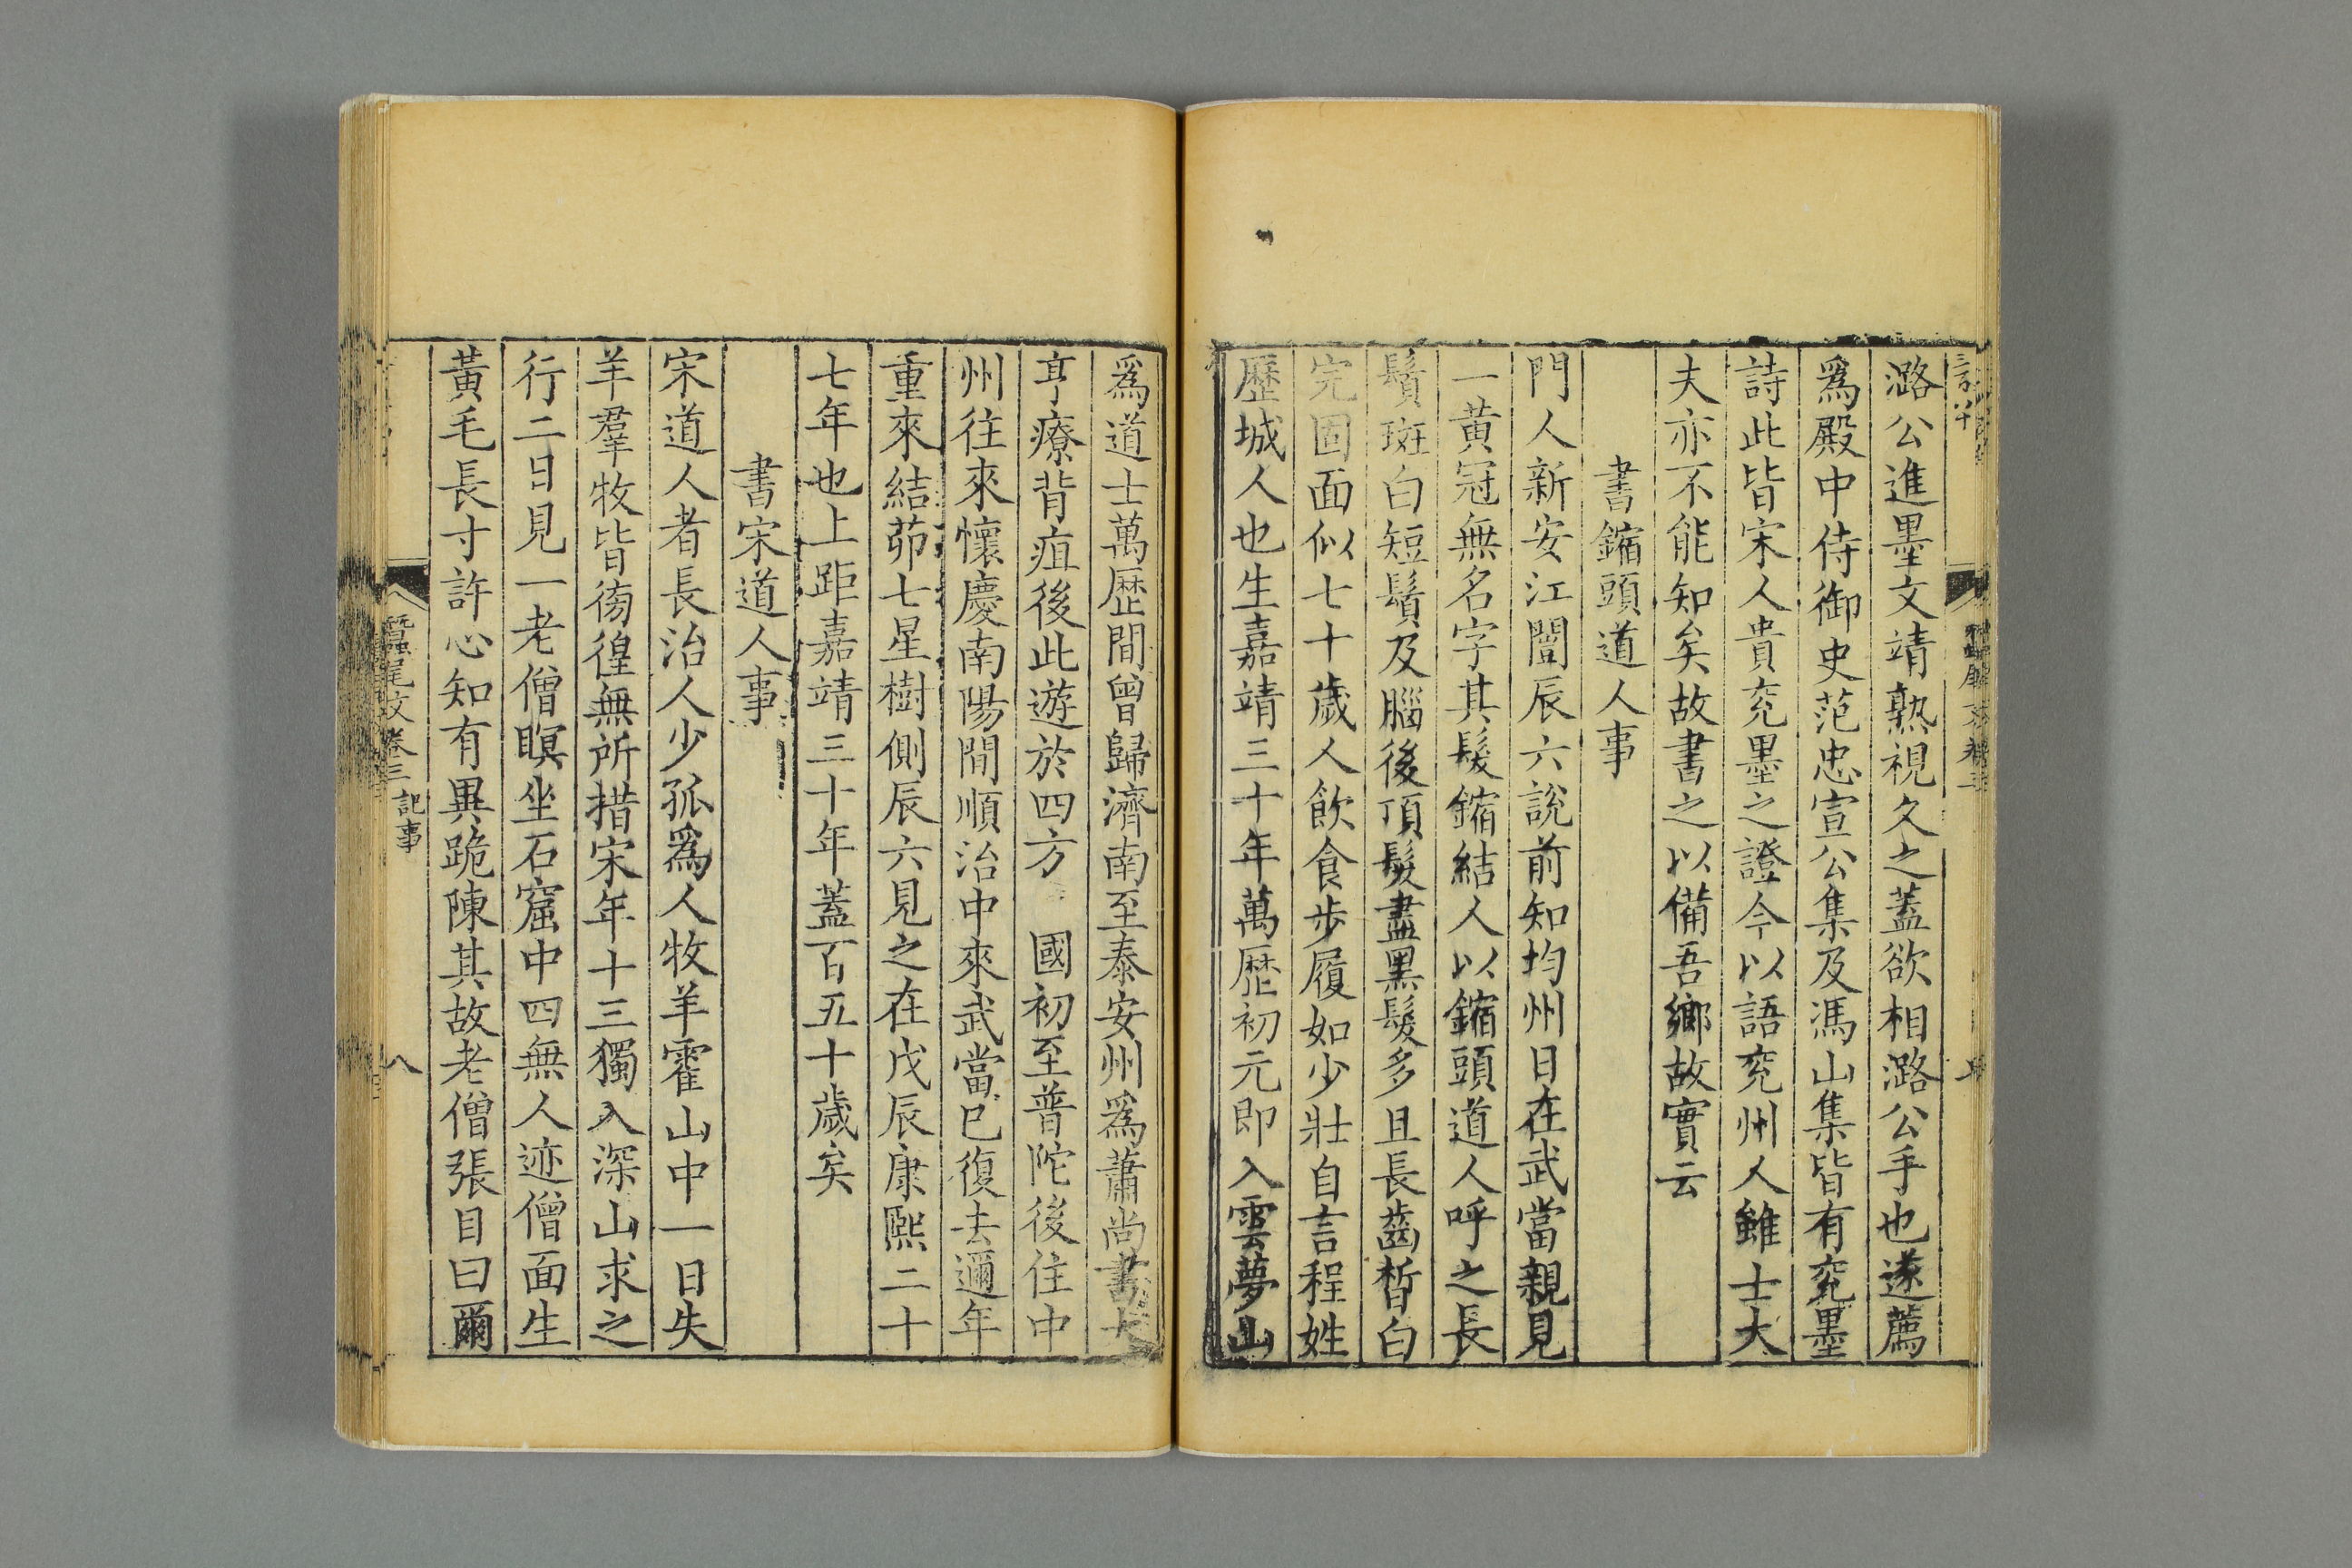 潞公進墨文靖熟視久之蓋欲相潞公手也遂薦
爲殿中侍御史范忠宣公集及馮山集皆有兖墨
詩此皆宋人貴兖墨之證今以語兖州人雖士大
夫亦不能知矣故書之以備吾鄉故實云
書鏥頭道人事
門人新安江闓辰六說前知均州日在武當親見
一黄冠無名字其髮鏥結人以鏥頭道人呼之長
鬚斑白短鬚及腦後頂髮盡黑髮多且長齒晳白
完固面似七十歲人飲食步履如少壯自言程姓
歷城人也生嘉靖三十年萬歷初元即入雲夢山
爲道士萬歷間曾歸濟南至泰安州爲蕭尚書大
亨療背疽後此遊於四方 國初至普陀後住中
州往來懷慶南陽間順治中來武當已復去邇年
重來結茆七星樹側辰六見之在戊辰康熙二十
七年也上距嘉靖三十年蓋百五十歲矣
書宋道人事
宋道人者長治人少孤爲人牧羊霍山中一日失
羊羣牧皆徬徨無所措宋年十三獨入深山求之
行二日見一老僧瞑坐石窟中四無人迹僧面生
黃毛長寸許心知有異跪陳其故老僧張目曰爾
蠶尾文卷三 記事 八